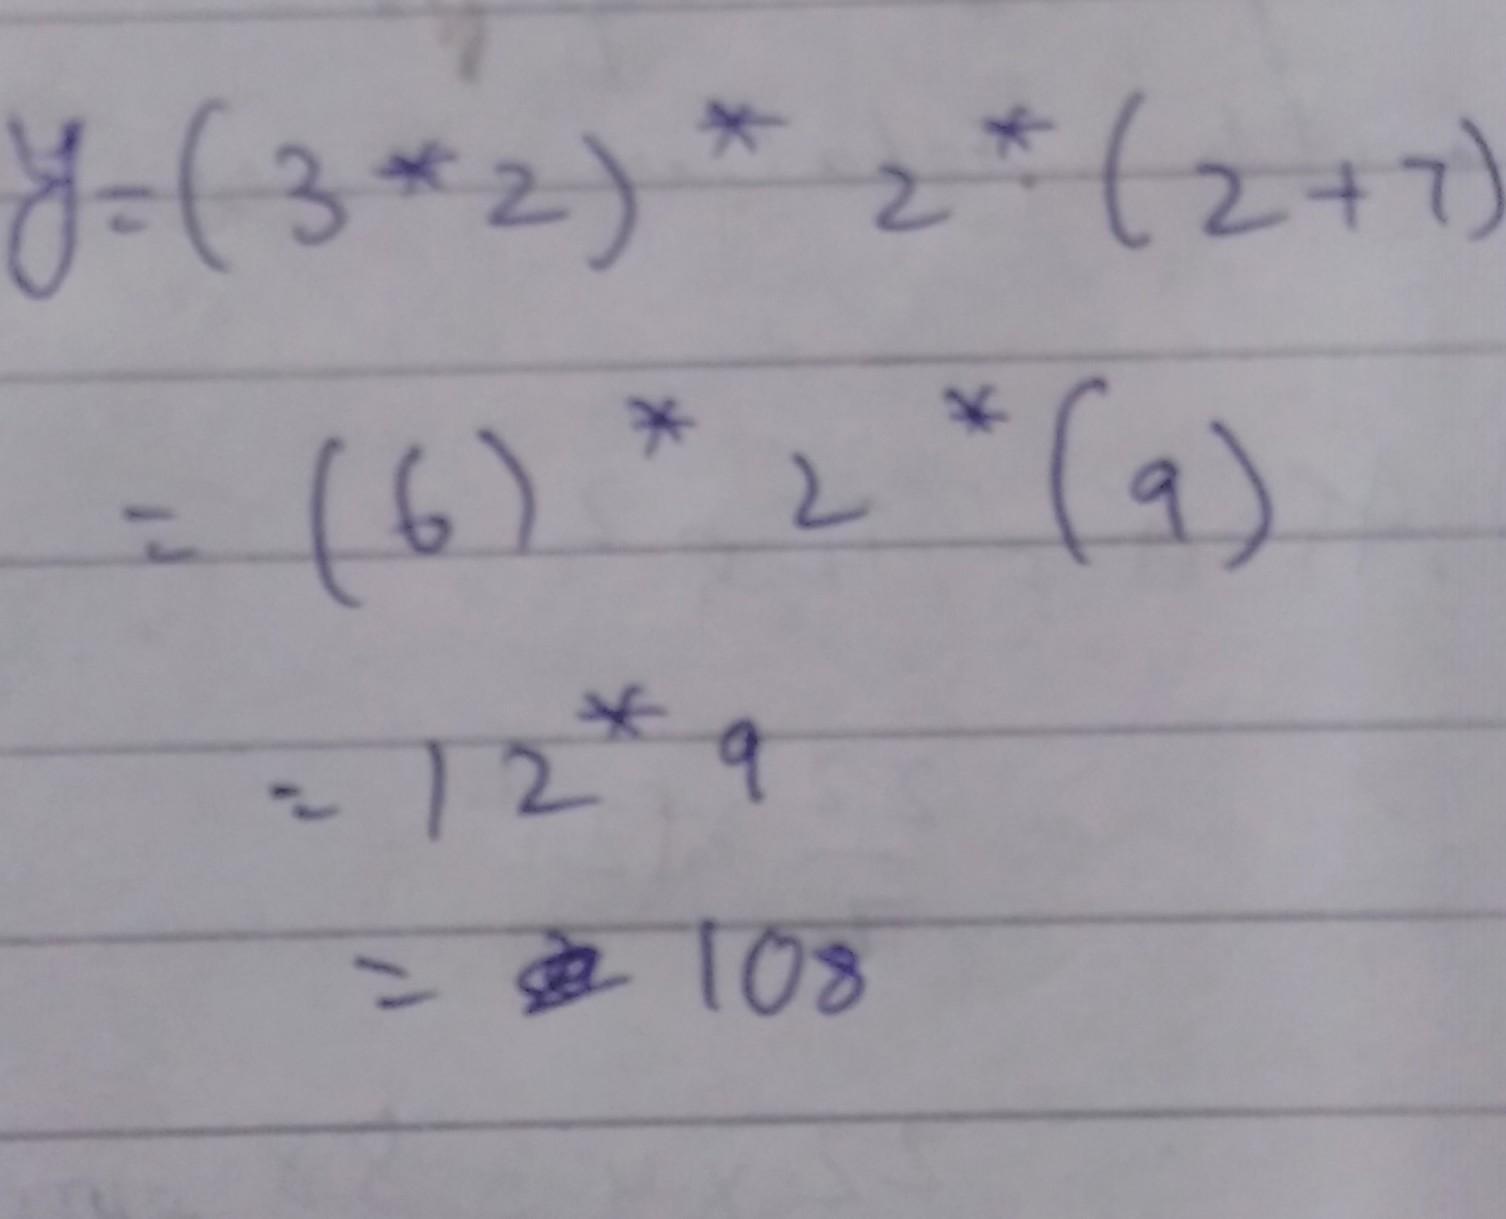 y=(3*2)*2*(2+7)
=(6)*2*(9)
=12*9
=108